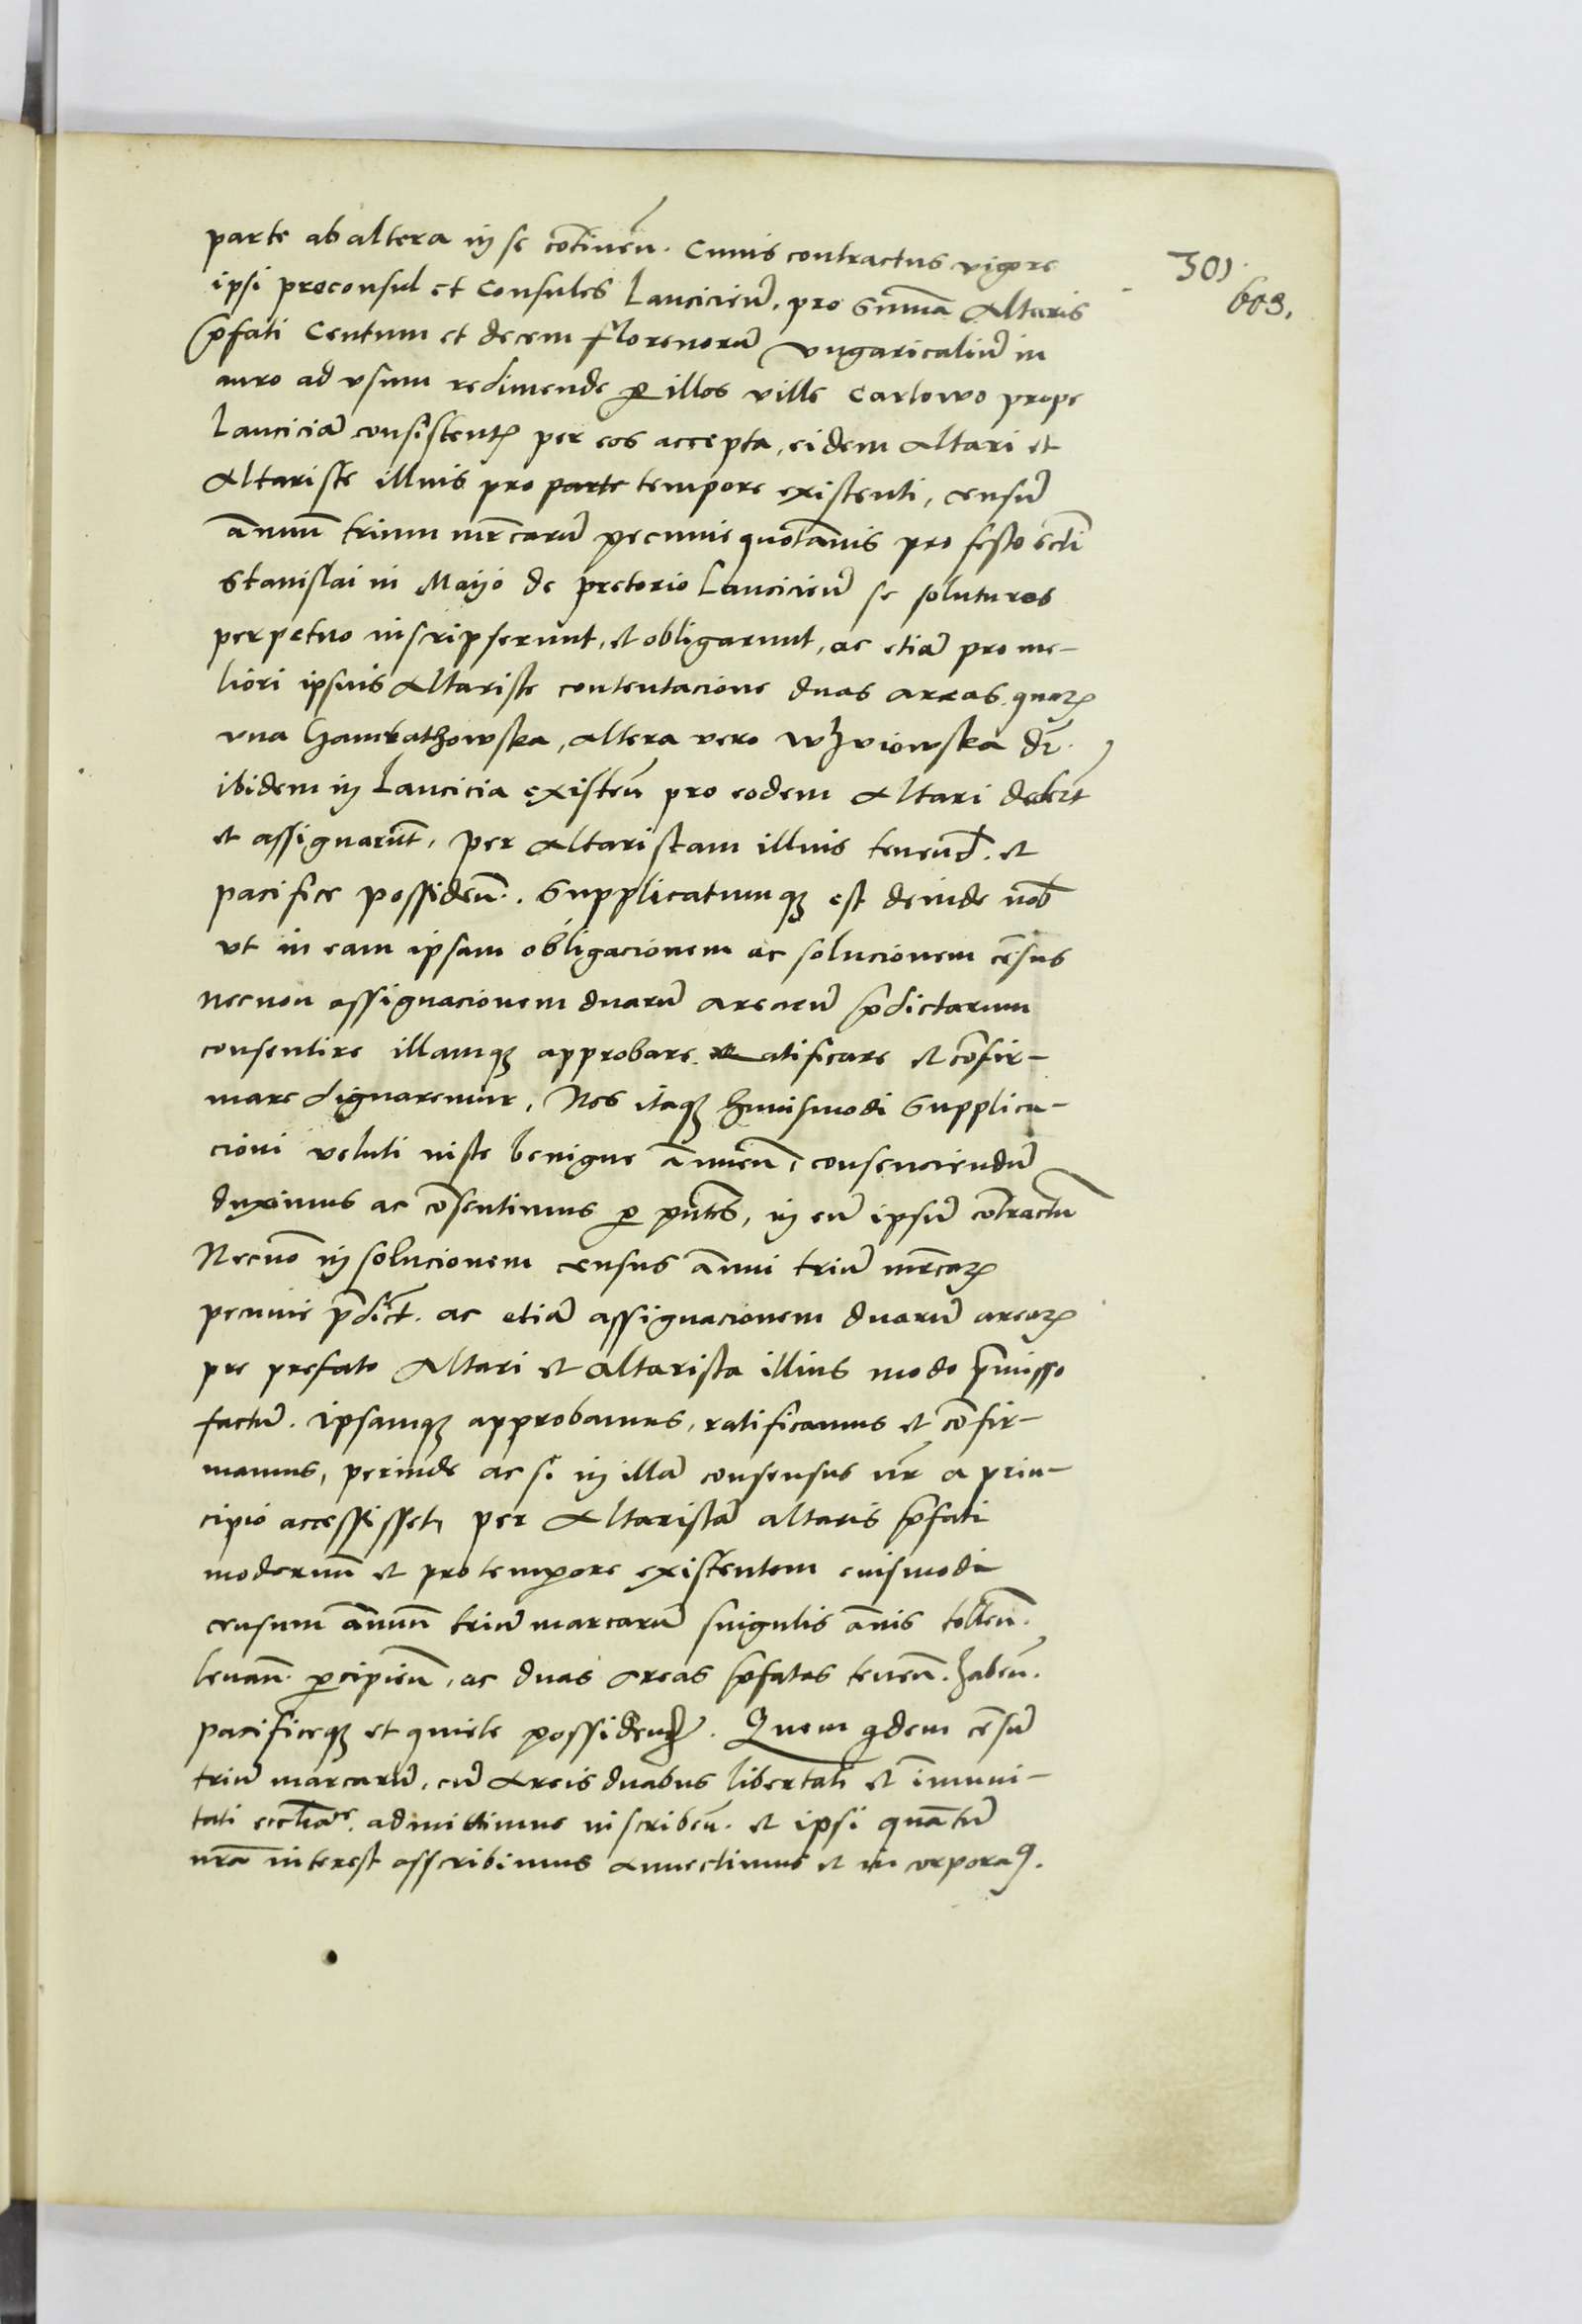 parte ab altera in se cōtinēn. Cuius contractus vigore
301.
ipsi proconsul et Consules Lanciciēn̄. pro Sum̄a Altaris
603.
p̄fati Centum et decem florenorū vngaricaliū in
auro ad vsum redimende p̱ illos ville Carlowo prope
Lanciciā consistentꝫ per eos accepta, eidem Altari et
Altariste illius pro parte tempore existenti, censū
ān̄uū trium mr̄carū pecunie quotānis pro festo scti
Stanislai in Maijo de pretorio Lanciciēn̄ se soluturos
perpetuo inscripserunt, et obligarunt, ac etiā pro me-
liori ipsius Altariste contentacione duas areas quaꝝ
vna Gambathowska, altera vero dr̄.
ibidem in Lancicia existēn̄ pro eodem Altari dederūt
et assignarūt, per Altaristam illius tenend̄. et
pacifice possidēn̄. Supplicatumqꝫ est deinde nob̄
vt in eam ipsam obligacionem ac solucionem cēsus
necnon assignacionem duarū arearū p̄dictarum
consentire illamqꝫ approbare ratificare et cōfir-
mare dignaremur, Nos itaqꝫ huiusmodi Supplica-
cioni veluti iuste benigne ān̄uēn̄, consenciendū
duximus ac cōsentimus p̱ pn̄tes, in eū ipsū cōtractū
Necnō in solucionem census ān̄ui triū mr̄caꝝ
pecunie p̄dict̄. ac etiā assignacionem duarū areaꝝ
pre prefato Altari et altarista illius modo p̄misso
factū. ipsamqꝫ approbamus, ratificamus et cōfir-
mamus, perinde ac si in illā consensus nr̄ a prin-
cipio accessisset, per Altaristā altaris p̄fati
modernū et pro tempore existentem eiusmodi
censum ān̄uū triū marcarū singulis ānis tollēn̄.
leuan̄. p̱cipiēn̄, ac duas Areas p̄fatas tenēn̄. habēn̄.
pacificeqꝫ et quiete possidend̄. Quem qdem cēsū
triū marcarū, cū Areis duabus libertati et īmuni-
tati eccl̄iāe. admittimus inscribēn̄. et ipsi quātū
nr̄a interest asscribimus Annectimus et incorporaꝯ.